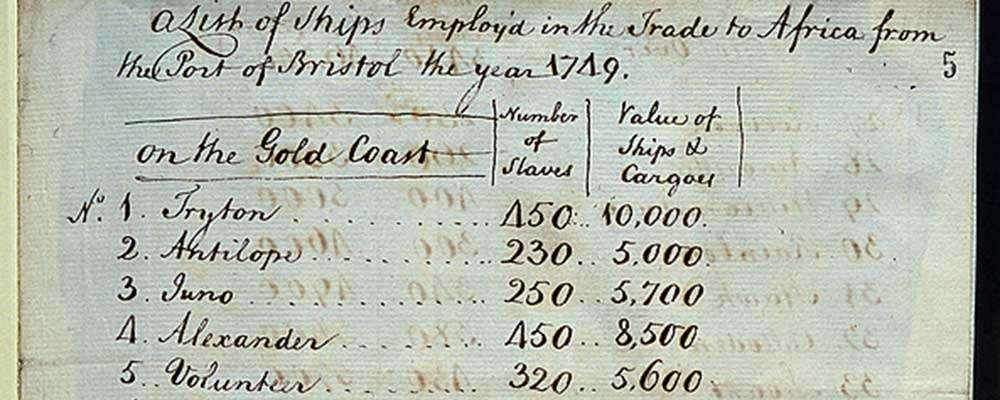 a List of Ships Employ'd in the Trade to Africa from
the Port of Bristol the year 1749.
5
Number of Slaves
Value of Ships & Cargoes
on the Gold Coast
No. 1. Tryton . . . . . . . . . 450 . . 10,000.
2. Antilope . . . . . . . . . 230 . . 5,000.
3. Juno . . . . . . . . . . 250 . . 5,700
4. Alexander . . . . . . . 450 . . 8,500
5. Volunteer . . . . . . . 320 . . 5,600